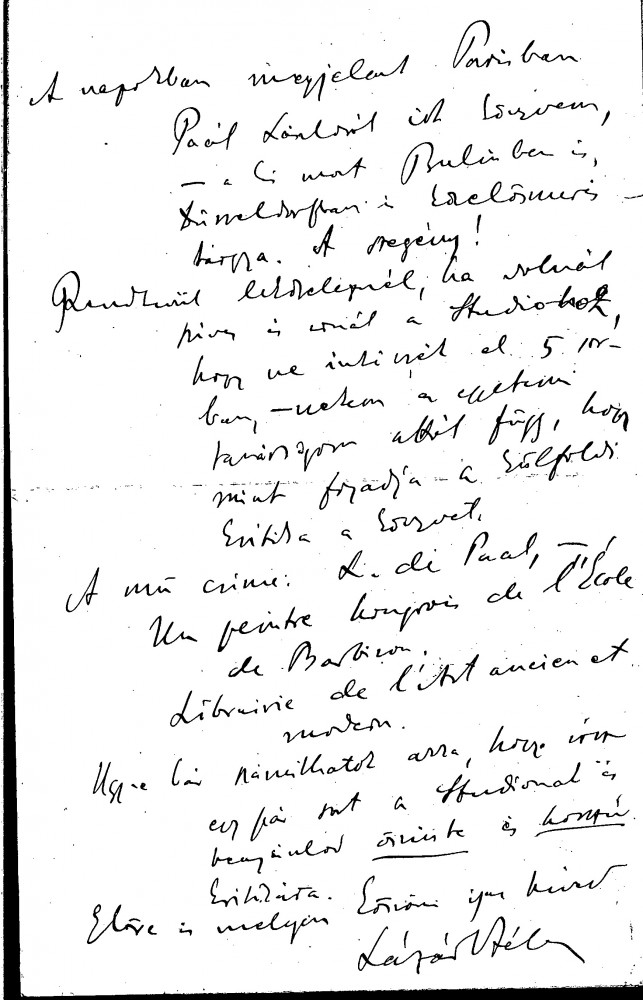 A napokban megjelent Párisban
Paál Lászlóról írt könyvem,
– a ki most Berlinben is,
Düsseldorfban is közelösmerés –
tárgya. A szegény!
Rendkivül leköteleznél, ha volnál
szives is a Studiohoz,
hogy ne intézzék el 5 sor-
ban, – nekem a egyetemi
tanárságom attól függ, hogy
mint fogadja a külföldi
kritika a könyvet.
A mű czime: L. de Paal, –
Un peintre hongrois de l'École
de Barbison.
Librairie de l'Art ancien et
modern.
Ugy-e bár számithatok arra, hogy irsz
egy pár sort a Studionál és
őszinte és hosszú
kritikára.
Előre is mélyen köszöni igaz hived
Lázár Béla